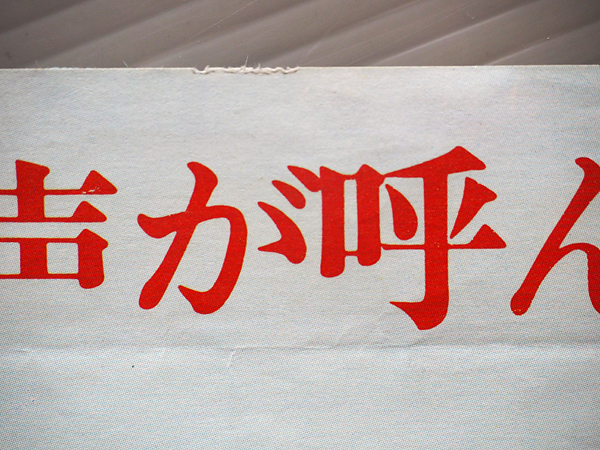 声が呼ん